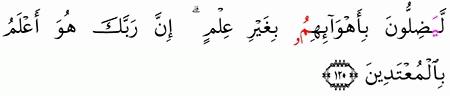 لَّيَضِلُّونَ بِأَهْوَآئِهِمُۥ بِغَيْرِ عِلْمٍ ۗ إِنَّ رَبَّكَ هُوَ أَعْلَمُ
بِالْمُعْتَدِينَ ﴿١٢٥﴾